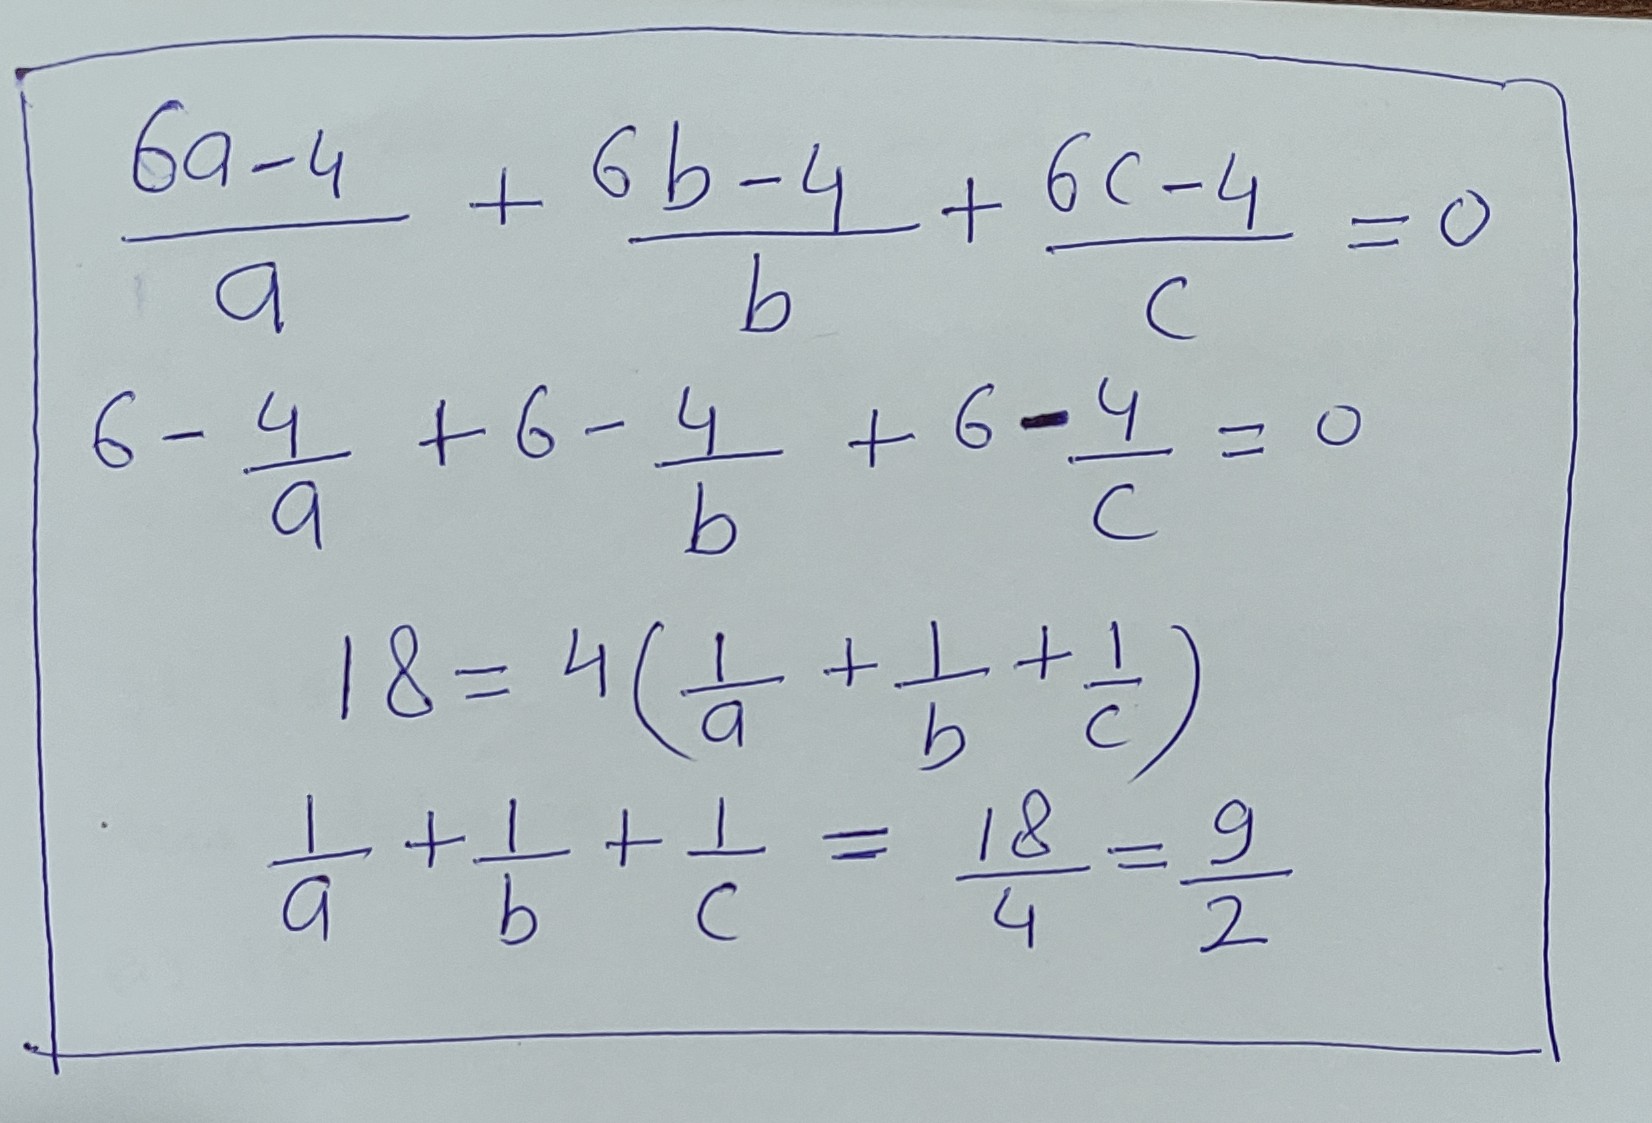 (6a-4)/a + (6b-4)/b + (6c-4)/c = 0
6 - 4/a + 6 - 4/b + 6 - 4/c = 0
18 = 4(1/a + 1/b + 1/c)
1/a + 1/b + 1/c = 18/4 = 9/2